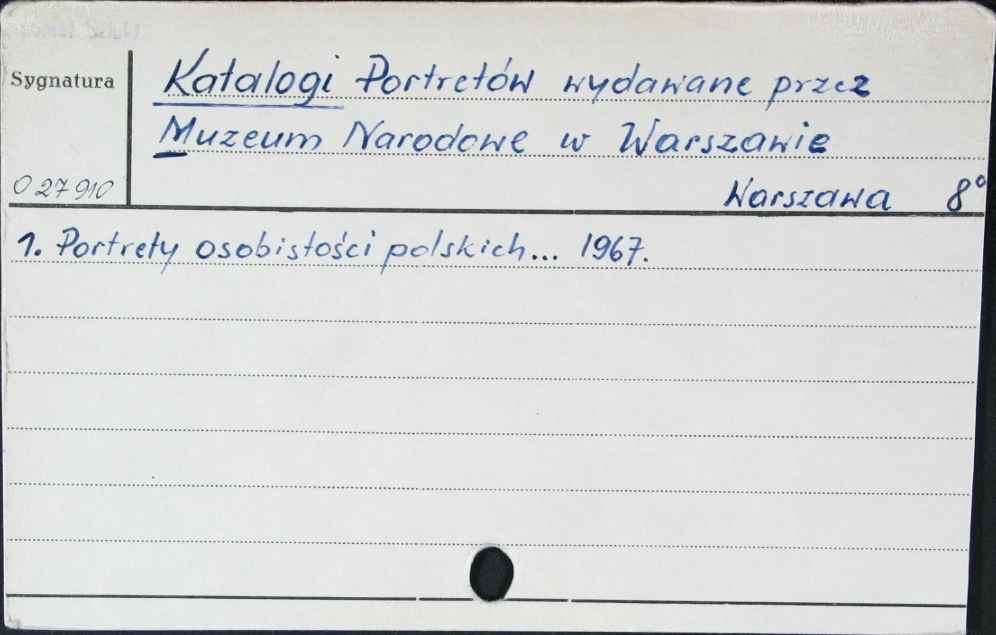 Sygnatura
O 27 910
Katalogi Portretów wydawane przez
Muzeum Narodowe w Warszawie
Warszawa 8°
1. Portrety osobistości polskich... 1967.